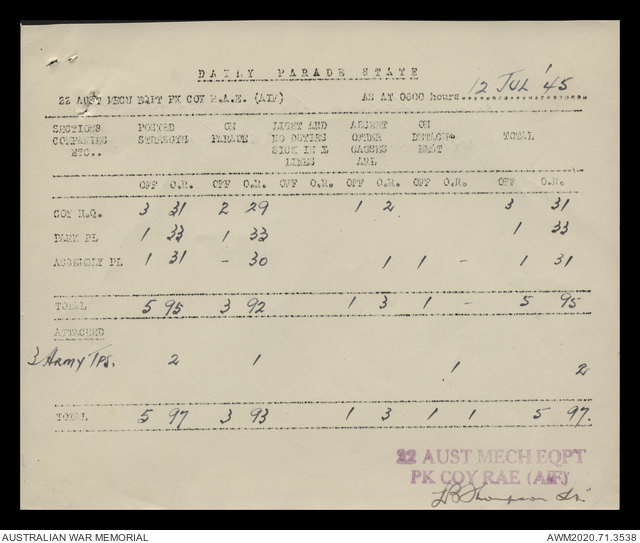 DAILY PARADE STATE
22 AUST MECH EQPT PK COY R.A.E. (AIF) AS AT 0600 hours 12 JUL '45
SECTIONS POSTED ON LIGHT AND ABSENT ON TOTAL
COMPANIES STRENGTH PARADE NO DUTIES OTHER DETACH-
ETC.. SICK IN X CAUSES MENT
LINES ABL
OFF O.R. OFF O.R. OFF O.R. OFF O.R. OFF O.R. OFF O.R.
COY H.Q. 3 31 2 29 1 2 3 31
PARK PL 1 33 1 33 1 33
ASSEMBLY PL 1 31 - 30 1 1 - 1 31
TOTAL 5 95 3 92 1 3 1 - 5 95
ATTACHED
3 ARMY TPS. 2 1 1 2
TOTAL 5 97 3 93 1 3 1 1 5 97.
22 AUST MECH EQPT
PK COY RAE (AIF)
Thompson
AUSTRALIAN WAR MEMORIAL AWM2020.71.3538